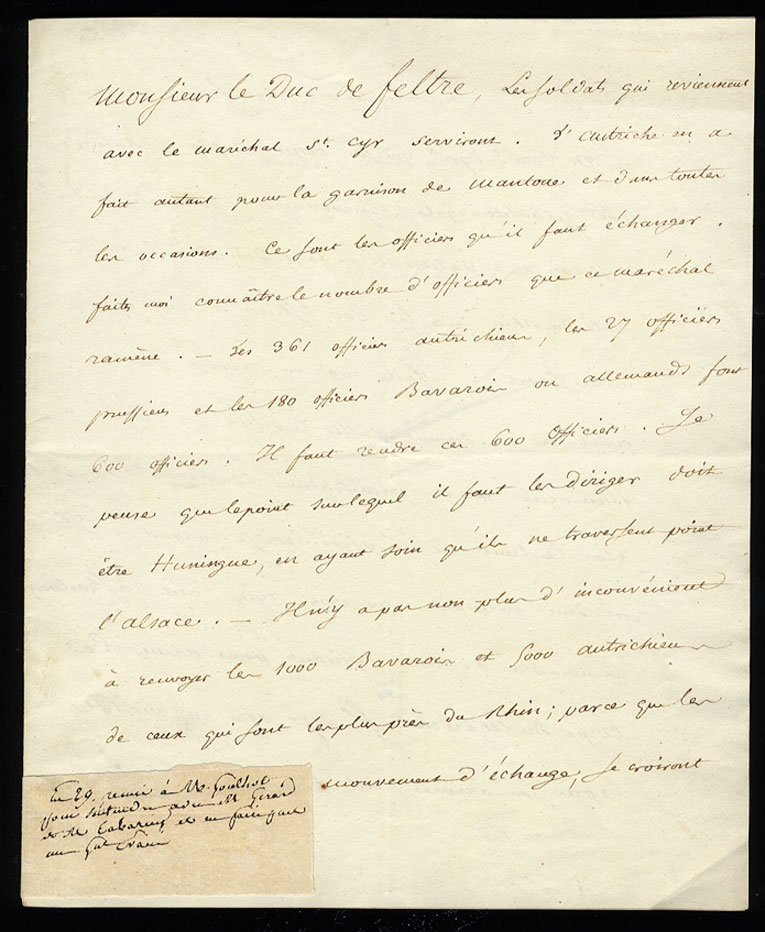 Monsieur le Duc de feltre, Les soldats qui reviennent
avec le maréchal St. Cyr serviront. L'autriche en a
fait autant pour la garnison de Mantoue et dans toutes
les occasions. Ce sont les officiers qu'il faut échanger.
faites moi connaître le nombre d'officiers que ce maréchal
ramène. — Les 361 officiers autrichiens, les 27 officiers
prussiens et les 180 officiers Bavarois ou allemands font
600 officiers. Il faut rendre ces 600 officiers. Je
pense que le point sur lequel il faut les diriger doit
être Huningue, en ayant soin qu'ils ne traversent point
l'alsace. — Il n'y a pas non plus d'inconvénient
à renvoyer les 1000 Bavarois et 5000 autrichiens
de ceux qui sont les plus près du Rhin; parce que les
mouvement d'échange, se croiront
Le 29, remis à M. Goulhot
pour s'entendre avec M. Gérard
et M. Tabarié et en faire
au